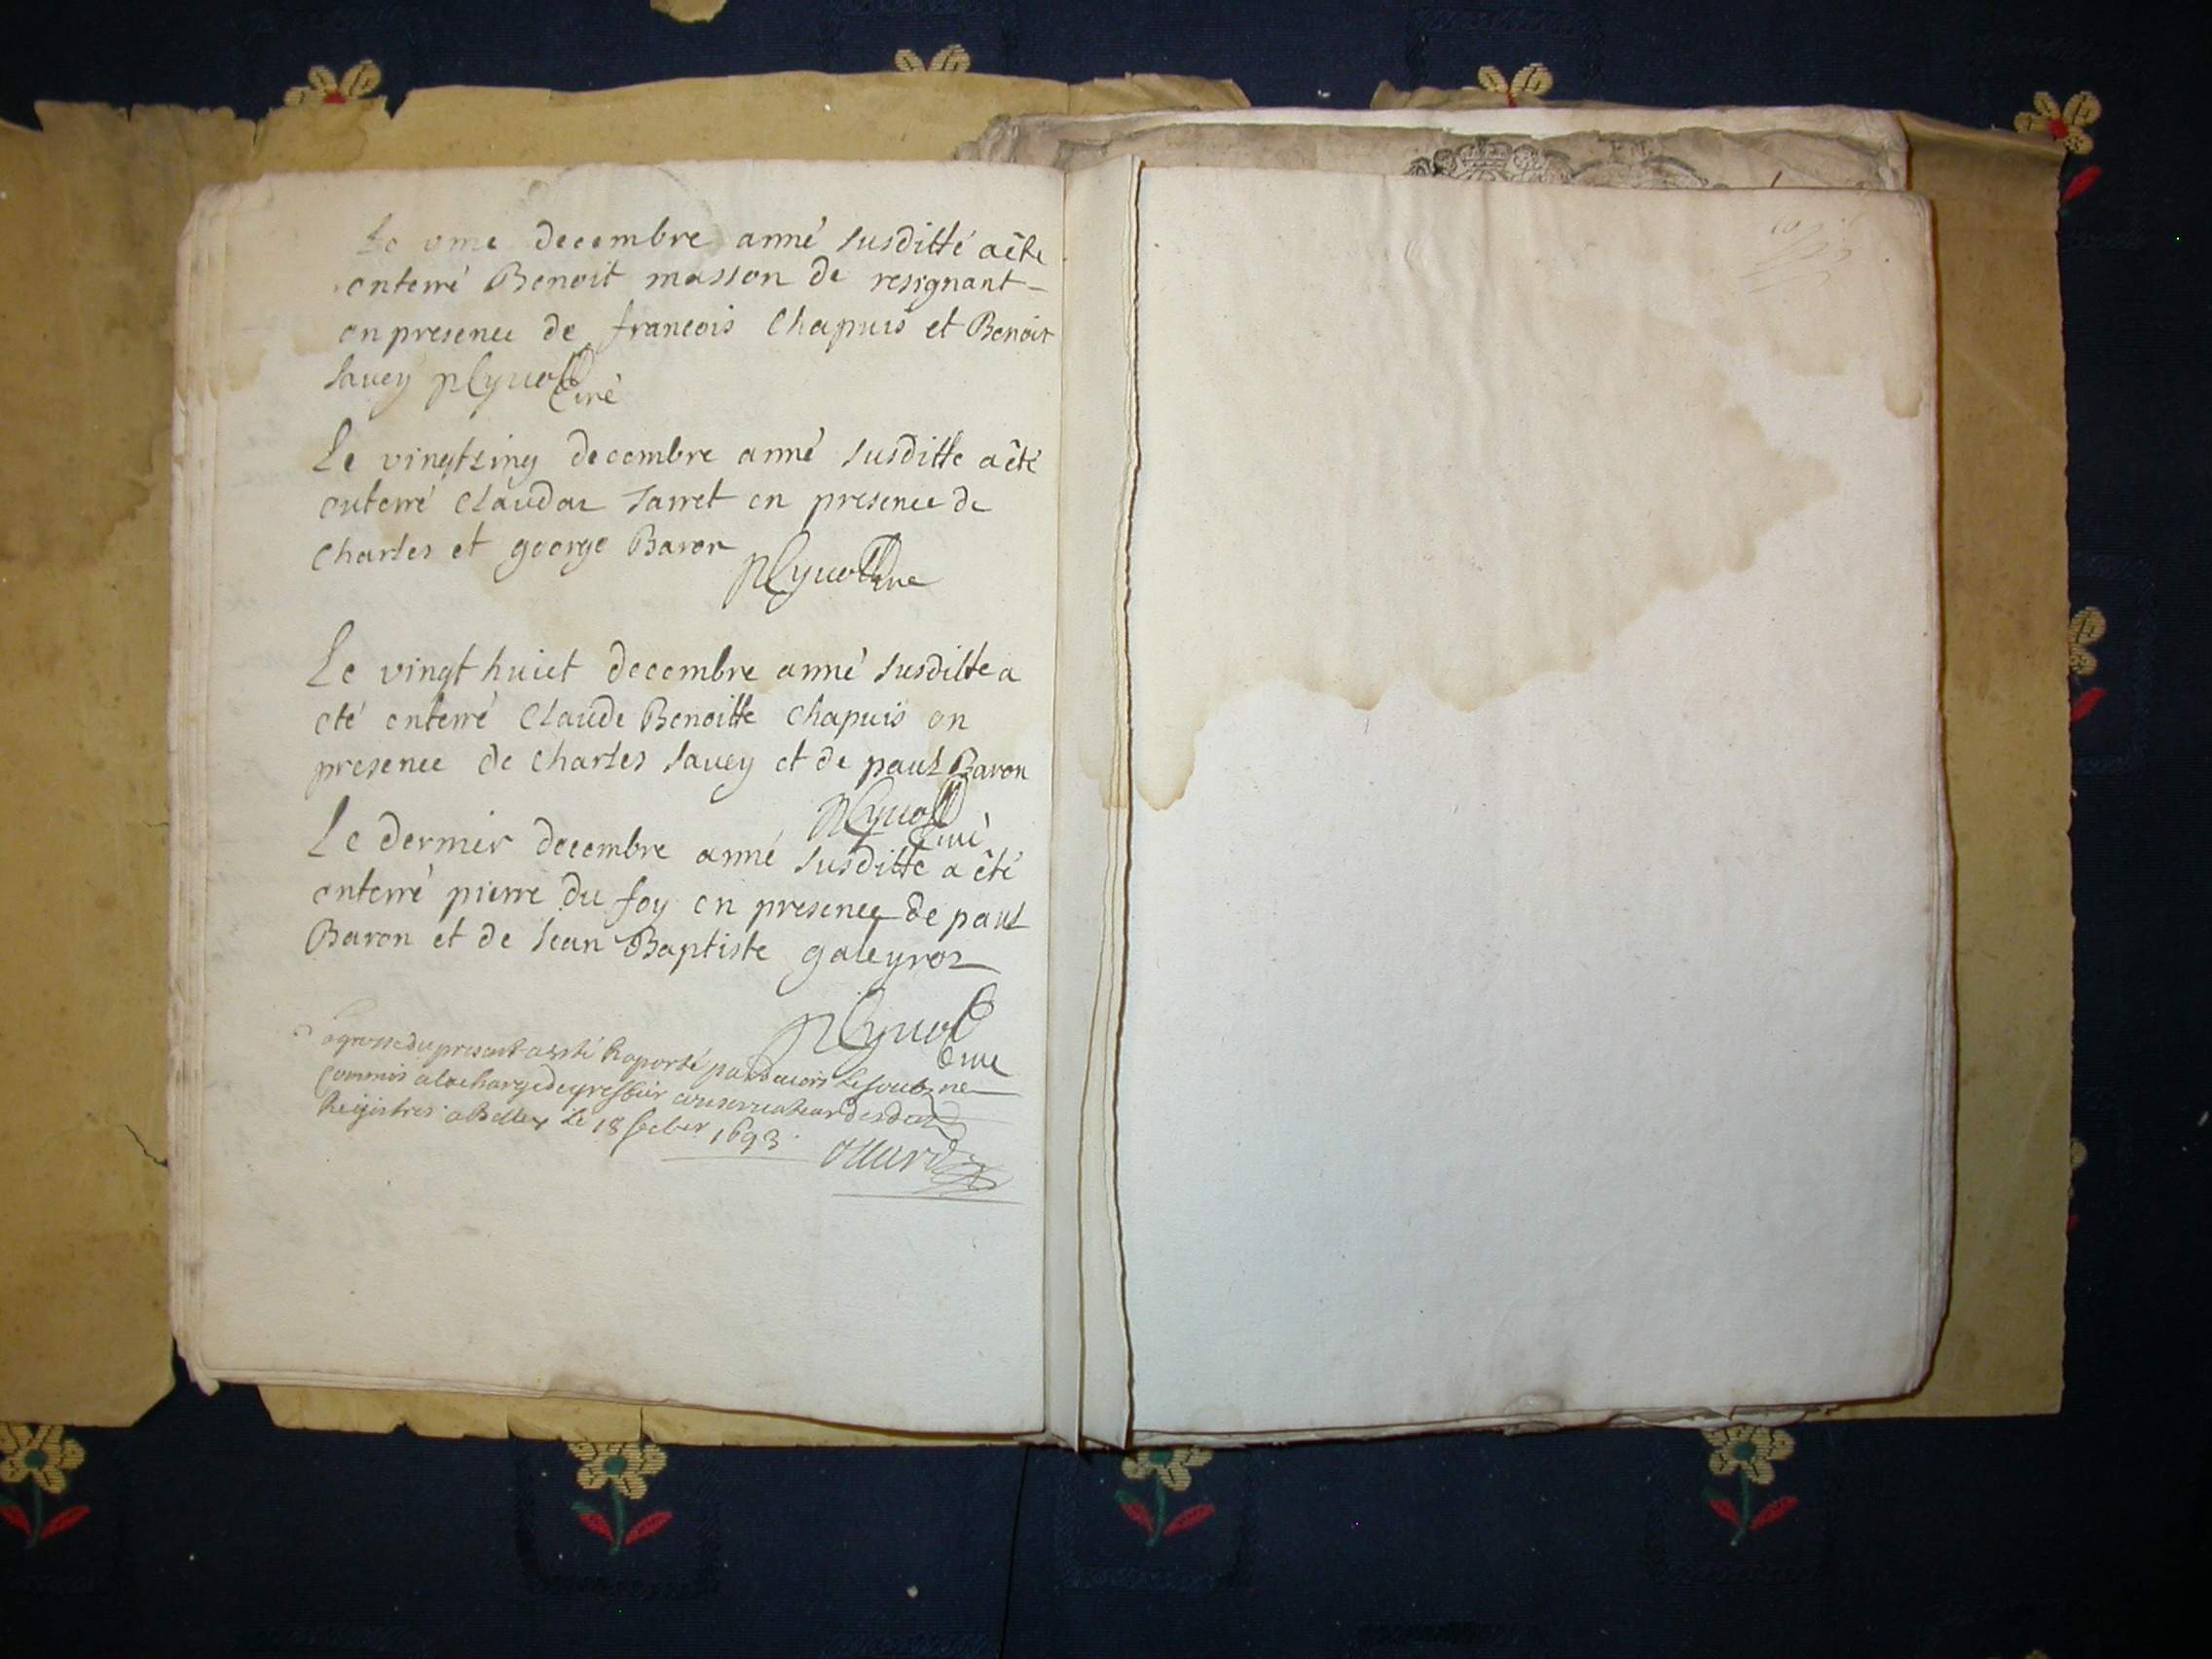 Le onze decembre anné susditté a êté
enterré Benoit masson de resignant
en presence de francois Chapuis et Benoit
savey
Curé
Le vingtsinq decembre anné susditte a êté
enterré Claudaz Sarret en presence de
Charles et george Baron
Curé
Le vingt huict decembre anné susditte a
eté enterré Claude Benoitte Chapuis en
presence de Charles savey et de paul Baron
Curé
Le dernier decembre anné susditte a êté
enterré pierre du foy en presence de paul
Baron et de Jean Baptiste galeyroz
Curé
La grosse du present a esté raporté par devers le soubz né
Commis a la charge de greffier conservateur desd
Registres a Belley le 18 1693